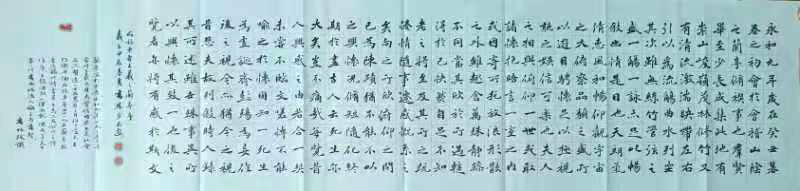 永和九年歲在癸丑暮
春之初會於會稽山陰
之蘭亭脩禊事也群賢
畢至少長咸集此地有
崇山峻嶺茂林脩竹又
有清流激湍映帶左右
引以為流觴曲水列坐
其次雖無絲竹管弦之
盛一觴一詠亦足以暢
敘幽情是日也天朗氣
清惠風和暢仰觀宇宙
之大俯察品類之盛所
以遊目騁懷足以極視
聽之娛信可樂也夫人
之相與俯仰一世或取
諸懷抱晤言一室之內
或因寄所託放浪形骸
之外雖趣舍萬殊靜躁
不同當其欣於所遇暫
得於己快然自足不知
老之將至及其所之既
倦情隨事遷感慨係之
矣向之所欣俛仰之間
已為陳跡猶不能不以
之興懷況脩短隨化終
期於盡古人云死生亦
大矣豈不痛哉每覽昔
人興感之由若合一契
未嘗不臨文嗟悼不能
喻之於懷固知一死生
為虛誕齊彭殤為妄作
後之視今亦猶今之視
昔悲夫故列敘時人錄
其所述雖世殊事異所
以興懷其致一也後之
覽者亦將有感於斯文